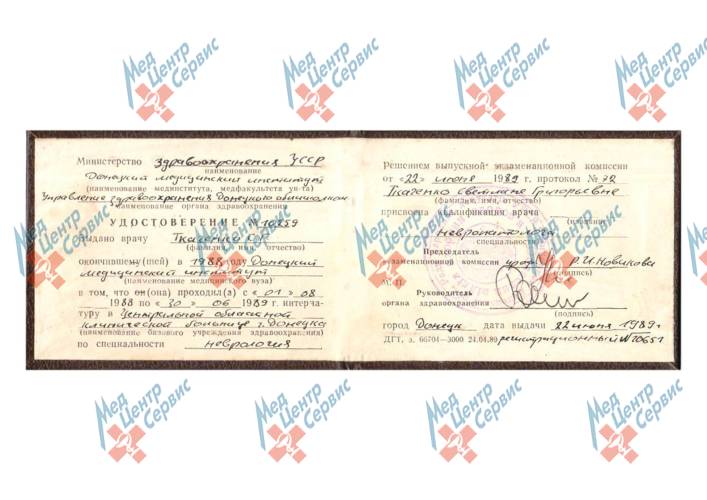 Мед Центр Сервис
Мед Центр Сервис
Мед Центр Сервис
Мед Центр Сервис
Министерство здравоохранения УССР
наименование
Донецкий медицинский институт
(наименование мединститута, медфакультета ун-та)
Управление здравоохранения Донецкого облисполкома
наименование органа здравоохранения
УДОСТОВЕРЕНИЕ №
Выдано врачу Ткаченко С.Г.
(фамилия, имя, отчество)
окончившему(шей) в 1988 году Донецкий
медицинский институт
(наименование медицинского вуза)
в том, что он(она) проходил(а) с «01» 08
1988 по «30» 06 1989 г. интерна-
туру в Центральной областной
клинической больнице г. Донецка
(наименование базового учреждения здравоохранения)
по специальности неврология
Решением выпускной экзаменационной комиссии
от «22» июня 1989 г. протокол № 72
Ткаченко Светлане Григорьевне
(фамилия, имя, отчество)
присвоена квалификация врача
невропатолога
специальность
Председатель
экзаменационной комиссии проф. Р.И. Новикова
(подпись)
М. П.
Руководитель
органа здравоохранения
(подпись)
город Донецк дата выдачи 22 июня 1989 г.
ДГТ, з. 66701—3000 24.04.89 регистрационный №10651
Мед Центр Сервис
Мед Центр Сервис
Мед Центр Сервис
Мед Центр Сервис